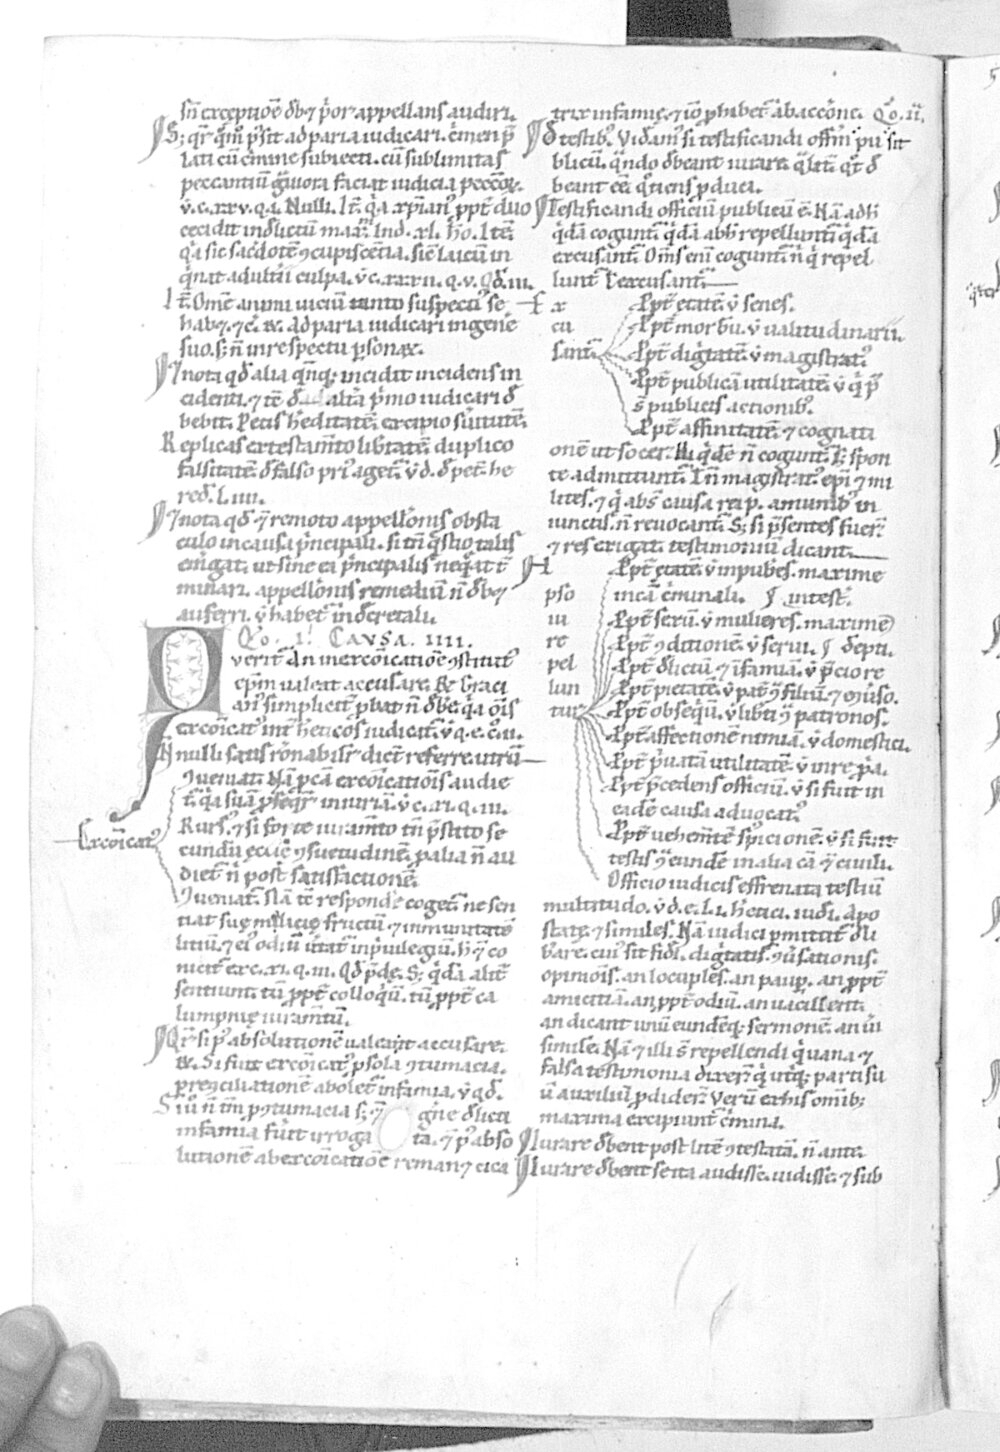 sñ exceptiōe dƀꝫ p̃or appellans audiri.
S; qr̃ q̃m p̃sit ad paria iudicari. c̃men p̃
lati cū c̃mine subiecti. cū sublimitas
peccantiū g̃uiora faciat iudicia
v̄. c. xxv. q. i. Nulli. It̃. q̃a xp̃ian᷒ ꝓpt̃ duo
cecidit in
q̃a sic sacdotē ꝯcupiscētia. sic̄ laicū in
q̃nat adult̃ii culpa. v̄c. xxxii. q. v. Qđ. iii.
It̃. Om̄e animi uiciū tanto suspect᷒ se
habꝫ. ⁊c̃. ad paria iudicari in gen̄e
suo. s; ñ in respectu ꝑsonaꝝ.
⁊ nota qđ alia q̃nq; incidit incidens in
cidenti. ⁊ tē đ alt̃a p̃mo iudicari đ
bebit. Petis h̃editatē. excipio s̃uitutē.
Replicas ex testam̃to lib̃tatē. duplico
falsitatē. đ falso pri᷒ agetˀ. v̄. đ. đ pet̃. he
red̃. l. iiii.
⁊ nota qđ ⁊ remoto appell̃onis obsta
culo in causa p̃ncipali. si tñ q̃stio talis
em̃gat. ut sine ea p̃ncipalis neq̃at t̃
minari. appell̃onis remediū ñ dƀꝫ
auferri. v̄ habet̃ in dc̃retali.
Qo. I. CAVSA. IIII.
Querit᷒ An in excōicatiōe ꝯstitut᷒
ep̄m ualeat accusare. Et Graci
an᷒ simplicit̃ ꝓbat ñ dƀe. q̃a ōis
excōicat᷒ int̃ h̃eticos iudicat̃. v̄ q. e. c. iii.
nulli satis rōnabilit̃ dicet̃ referre. utrū
ꝯueniat. Nā p̃ cā excōicatiōis audie
t̃. q̃a suā ꝓseq̃r iniuriā. v̄ c. xi. q. iii.
Excōicat᷒
Rurs᷒. ⁊ si forte iuram̃to tñ p̃stito se
cundū ecc̄ie ꝯsuetudinē. p alia ñ au
diet̃. ñ post satisfactionē.
ꝯueniat̃. s̄lā tē respondē coget̃. ne sen
tiat suę malicię fructū. ⁊ inmunitatē
litiū. ⁊ ei᷒ odiū u̇tat̃ in p̃uilegiū. h̄ ⁊ co
nicit̃ ex c. xi. q. iii. Qđ p̃de. S; q̃dā alit̃
sentiunt. tū ꝓpt̃ colloq̃ū. tū ꝓpt̃ ca
lumpnię iuramtū.
Qr̃ si p᷒ absolutionē ualeat accusare.
⁊. Si fuit excōicat᷒ ꝑ sola ꝯtumacia.
p reꝯciliationē abolet̃ infamia. v̄ qđ.
Si ū ñ tm̄ ꝑ ꝯtumacia s; ⁊ gñe đlicti
infamia fu̇it irroga ta. ⁊ p᷒ abso
lutionē ab excōicatiōe remanꝫ cica
trix infamię. ⁊ iō ꝓhibet̃ ab accōne. Qo. II.
đ testib᷒. Vidam᷒ si testificandi offm̄ pu sit
blicū. q̃ndo dƀeant iurare. q̃lit̃. q̃t đ
beant ēē. q̃tiens ꝓduci.
Testificandi officiū publicū ē. Nā ad h̄
q̃dā coguntˀ. q̃dā ab h̄ repelluntˀ. q̃dā
excusantˀ. Om̄s enī coguntˀ. ñ q̃ repel
luntˀ ł excusantˀ.
Ex
cu
santˀ
ꝓpt̃ etatē. v̄ senes.
ꝓpt̃ morbū. v̄ ualitudinarii.
ꝓpt̃ dig̃tatē. v̄ magistrat᷒.
ꝓpt̃ publicā utilitatē. v̄ q̃ p̃
s̄ publicis actionib᷒.
ꝓpt̃ affinitatē. ⁊ cognati
onē ut socer. Hi q̃dē ñ coguntˀ. s; spon
te admittuntˀ. In̄ magistrat᷒. ep̄i. ⁊ mi
lites. ⁊ q̃ abs̄ causa rei p. a muniƀ᷒ in
iunctis. ñ reuocantˀ. S; si p̃sentes fuer̃
⁊ res exigat. testimoniū dicant.
H
pso
iu
re
pel
lun
tur
ꝓpt̃ etatē. v̄ inpubes. maxime
in cā c̃minali. ꝯ intest̃.
ꝓpt̃ sexū. v̄ mulieres. maxime
ꝓpt̃ ꝯditionē. v̄ serui. ꝯ đepti.
ꝓpt̃ đlictū. ⁊ ĩfamiā. v̄
ꝓpt̃ pietatē. v̄ pat̃ ꝯ filiū. ⁊ eꝯuso.
ꝓpt̃ obseq̃ū. v̄ lib̃ti ꝯ patronos.
ꝓpt̃ affectionē nimiā. v̄ domestici.
ꝓpt̃ p̃uatā utilitatē. v̄ in re p̃a.
ꝓpt̃ p̃cedens officiū. v̄ si fuit in
eadē causa aduocat᷒.
ꝓpt̃ uehem̄tē spicionē. v̄ si fuit
testis ꝯ eundē in alia cā ⁊ ciuili.
Officio iudicis effrenata testiū
multitudo. v̄ đ. e. l. i. h̃etici. iudi. apo
state. ⁊ similes. Nā iudici ꝑmittit̃ đli
b̃are. cui᷒ sit fidi. dig̃tatis. ꝯu̇sationis.
opiniōis. an locuples. an paup. an ꝓpt̃
amicitiā. an ꝓpt̃ odiū. an uacillent.
an dicant unū eundēq; sermonē. an u̇i
simile. Nā ⁊ illi s̄ repellendi q̃ uana ⁊
falsa testimonia dixer̃. q̃ ut̃q; parti su
ū auxiliū ꝓdider̃. Verū ex his om̄ib;
maxima excipiunt̃ c̃mina.
Iurare dƀent post litē ꝯtestatā. ñ ante.
Iurare dƀent se ita audisse. uidisse. ⁊ sub